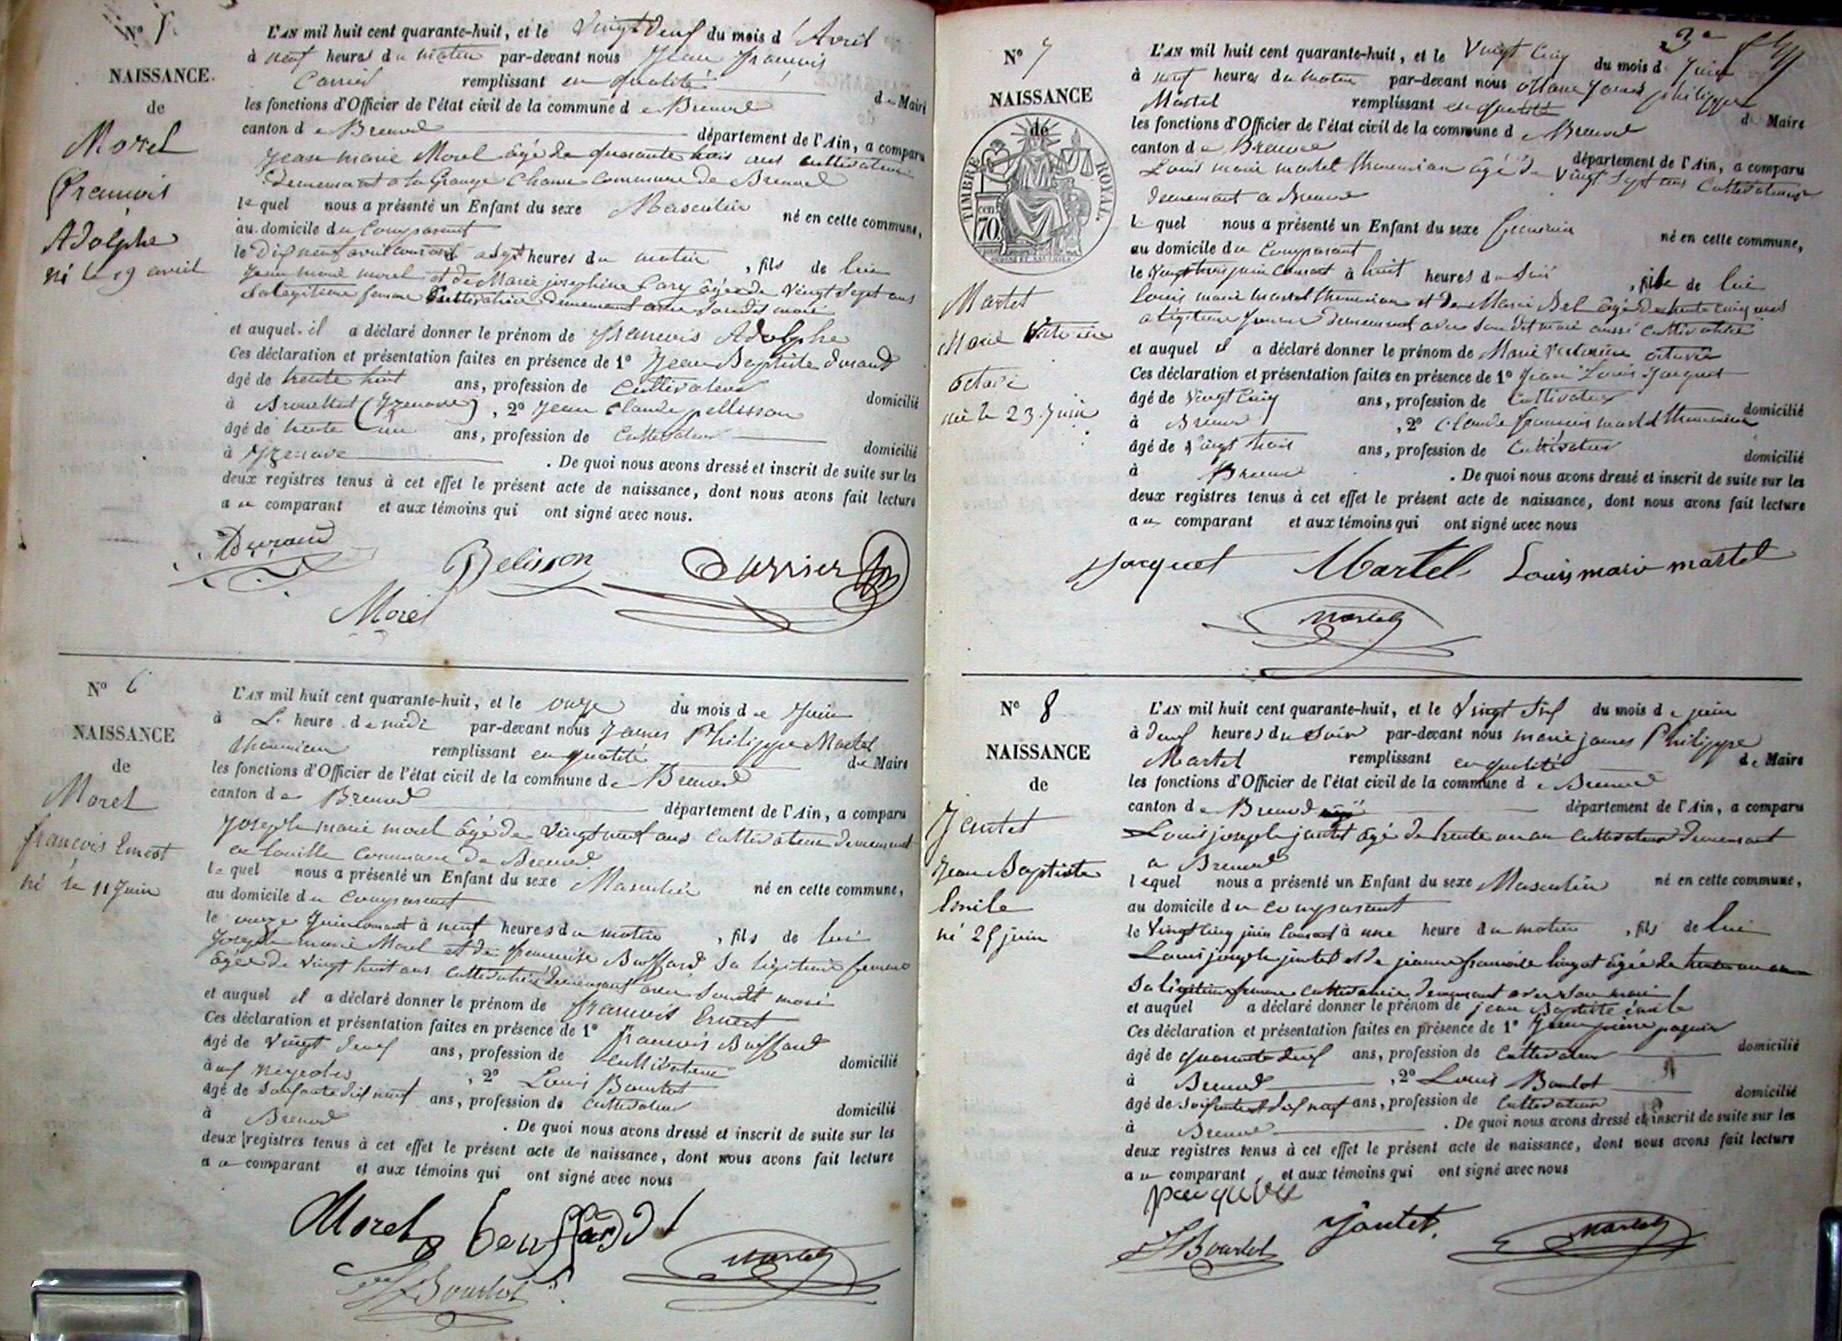 N° 5.
NAISSANCE.
de
Morel
François
Adolphe
né le 19 avril
L'AN mil huit cent quarante-huit, et le vingt deux du mois d'Avril
à neuf heures du matin par-devant nous Jean françois
remplissant en qualité de Maire
les fonctions d'Officier de l'état civil de la commune de Brenod
canton de Brenod département de l'Ain, a comparu
Jean marie Morel âgé de quarante trois ans cultivateur
demeurant a la Grange commune de Brenod
lequel nous a présenté un Enfant du sexe Masculin né en cette commune,
au domicile du Comparant
le dix neuf avril courant à sept heures du matin, fils de lui
jean marie morel et de Marie josephine Cary âgée de vingt sept ans
sa légitime femme cultivatrice demeurant avec son dit mari
et auquel il a déclaré donner le prénom de françois Adolphe
Ces déclaration et présentation faites en présence de 1° Jean Baptiste durand
âgé de trente huit ans, profession de Cultivateur domicilié
à (Izenave), 2° Jean Claude pellisson
âgé de trente un ans, profession de Cultivateur domicilié
à Izenave. De quoi nous avons dressé et inscrit de suite sur les
deux registres tenus à cet effet le présent acte de naissance, dont nous avons fait lecture
au comparant et aux témoins qui ont signé avec nous.
Durand Pelisson Carrier
Morel
N° 6
NAISSANCE
de
Morel
françois Ernest
né le 11 Juin
L'AN mil huit cent quarante-huit, et le onze du mois de Juin
à L. heure de midi par-devant nous James Philippe Martel
thomnian remplissant en qualité de Maire
les fonctions d'Officier de l'état civil de la commune de Brenod
canton de Brenod département de l'Ain, a comparu
Joseph marie morel âgé de vingt neuf ans cultivateur demeurant
commune de Brenod
lequel nous a présenté un Enfant du sexe Masculin né en cette commune,
au domicile du comparant
le onze Juin courant à neuf heures du matin, fils de lui
Joseph marie Morel et de françoise Buffard sa légitime femme
âgée de vingt huit ans cultivatrice demeurant avec son dit mari
et auquel il a déclaré donner le prénom de françois Ernest
Ces déclaration et présentation faites en présence de 1° françois Buffard
âgé de vingt deux ans, profession de cultivateur domicilié
aux neyrolles, 2° Louis Bourlot
âgé de soixante dix neuf ans, profession de cultivateur domicilié
à Brenod. De quoi nous avons dressé et inscrit de suite sur les
deux registres tenus à cet effet le présent acte de naissance, dont nous avons fait lecture
au comparant et aux témoins qui ont signé avec nous
Morel
Martel
Bourlot
3e
N° 7
NAISSANCE
de
TIMBRE ROYAL
70 cent
Martel
Marie Victorine
octavie
née le 23 Juin
L'AN mil huit cent quarante-huit, et le vingt cinq du mois de Juin
à neuf heures du matin par-devant nous Marie James philippe
Martel remplissant en qualité de Maire
les fonctions d'Officier de l'état civil de la commune de Brenod
canton de Brenod département de l'Ain, a comparu
Louis marie martel thomnian âgé de vingt sept ans Cultivateur
demeurant a Brenod
lequel nous a présenté un Enfant du sexe féminin né en cette commune,
au domicile du Comparant
le vingt trois juin courant à huit heures du soir, fille de lui
Louis marie martel thomnian et de Marie Bel âgée de trente cinq ans
sa légitime femme demeurant avec son dit mari aussi cultivatrice
et auquel il a déclaré donner le prénom de Marie Victorine octavie
Ces déclaration et présentation faites en présence de 1° Jean Louis Jacquet
âgé de vingt cinq ans, profession de Cultivateur domicilié
à Brenod, 2° Claude françois martel thomnian
âgé de vingt trois ans, profession de Cultivateur domicilié
à Brenod. De quoi nous avons dressé et inscrit de suite sur les
deux registres tenus à cet effet le présent acte de naissance, dont nous avons fait lecture
au comparant et aux témoins qui ont signé avec nous
Jacquet Martel Louis marie martel
Martel
N° 8
NAISSANCE
de
Jantet
Jean Baptiste
Emile
né 25 juin
L'AN mil huit cent quarante-huit, et le vingt six du mois de juin
à deux heures du soir par-devant nous marie james Philippe
Martel remplissant en qualité de Maire
les fonctions d'Officier de l'état civil de la commune de Brenod
canton de Brenod département de l'Ain, a comparu
Louis joseph jantet âgé de trente un an cultivateur demeurant
a Brenod
lequel nous a présenté un Enfant du sexe Masculin né en cette commune,
au domicile du comparant
le vingt cinq juin courant à une heure du matin, fils de lui
Louis joseph jantet et de jeanne françoise âgée de trente un an
sa légitime femme cultivatrice demeurant avec son mari
et auquel a déclaré donner le prénom de jean Baptiste émile
Ces déclaration et présentation faites en présence de 1° Jean pierre
âgé de quarante deux ans, profession de Cultivateur domicilié
à Brenod, 2° Louis Bourlot
âgé de soixante et dix neuf ans, profession de Cultivateur domicilié
à Brenod. De quoi nous avons dressé et inscrit de suite sur les
deux registres tenus à cet effet le présent acte de naissance, dont nous avons fait lecture
au comparant et aux témoins qui ont signé avec nous
Bourlot Jantet. Martel